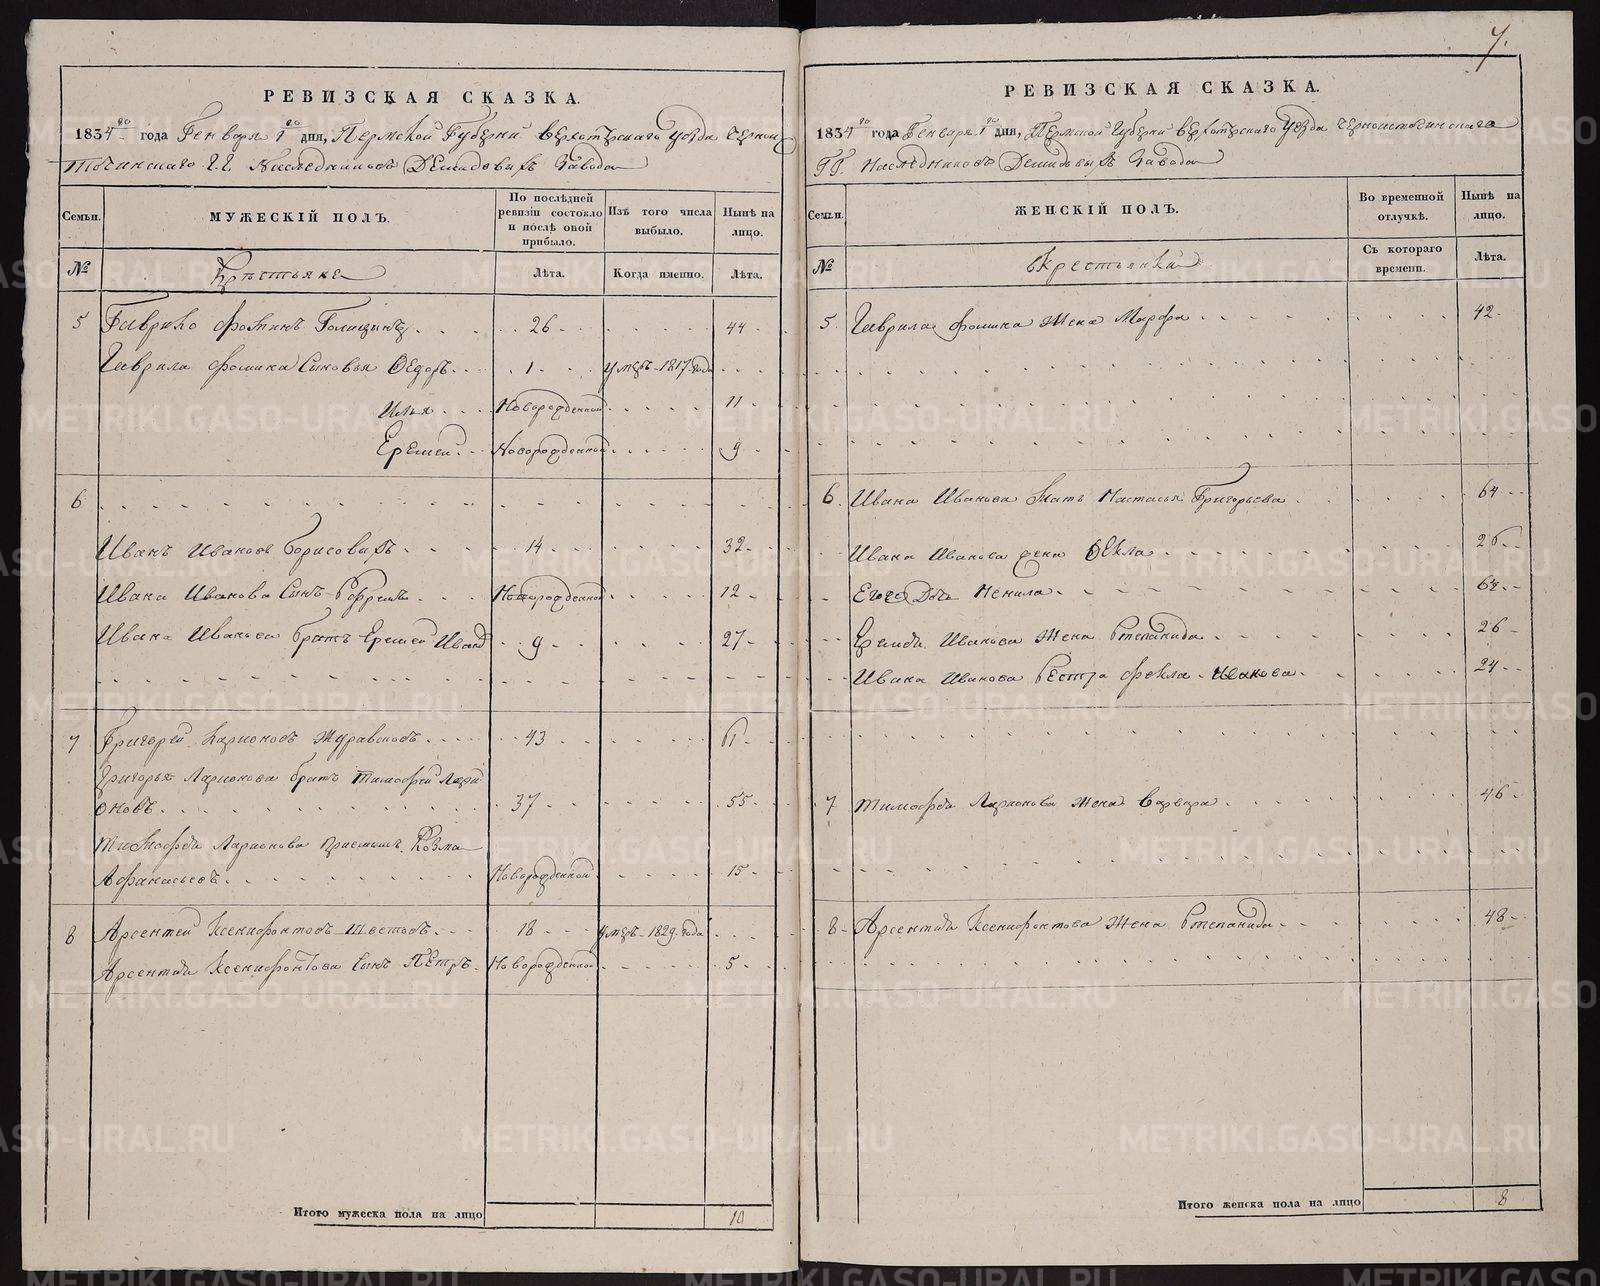 7.
РЕВИЗСКАЯ СКАЗКА.
1834 го года Генваря 1 го дня, Пермской Губерни Верхотурского уезда Черноис
точинского Г.Г. Наследников Демидовых завода
Семьи. МУЖЕСКІЙ ПОЛЪ. По послѣдней ревизіи состояло и послѣ оной прибыло. Изъ того числа выбыло. Нынѣ на лицо.
№ Крестьяне Лѣта. Когда именно. Лѣта.
5 Гаврило Фоминъ Голицинъ 26 44
Гаврила Фомина Сыновья Федоръ 1 умеръ 1817 года
Илья Новорожденной 11
Еремей Новорожденной 9
6
Иванъ Ивановъ Борисовыхъ 14 32
Ивана Иванова Сынъ Новорожденной 12
Ивана Иванова братъ Еремей Иванов 9 27
7 Григорей Ларионовъ Журавлевъ 43
Григорья Ларионова братъ Тимофей Лари
оновъ 37 55
Тимофея Ларионова приемышъ Козма
Афанасьевъ Новорожденной 15
8 Арсентей Ксенофонтовъ Шветовъ 18 умеръ 1829 года
Арсентия Ксенофонтова Сынъ Петръ Новорожденной 5
Итого мужеска пола на лицо 10
РЕВИЗСКАЯ СКАЗКА.
1834 го года Генваря 1 го дня, Пермской Губерни Верхотурского уезда Черноисточинскаго
ГГ. Наследниковъ Демидовыхъ завода
Семьи. ЖЕНСКІЙ ПОЛЪ. Во временной отлучкѣ. Нынѣ на лицо.
№ Крестьянки Съ котораго времени. Лѣта.
5 Гаврила Фомина Жена Марфа 42
6 Ивана Иванова Мать Настасья Григорьева 64
Ивана Иванова жена Фекла 26
Его Дочь Ненила
Еремея Иванова Жена Степанида 26
Ивана Иванова Сестра Фекла Иванова 24
7 Тимофея Ларионова Жена Варвара 46
8 Арсентия Ксенофонтова Жена Степанида 48
Итого женска пола на лицо 8
METRIKI.GASO-URAL.RU